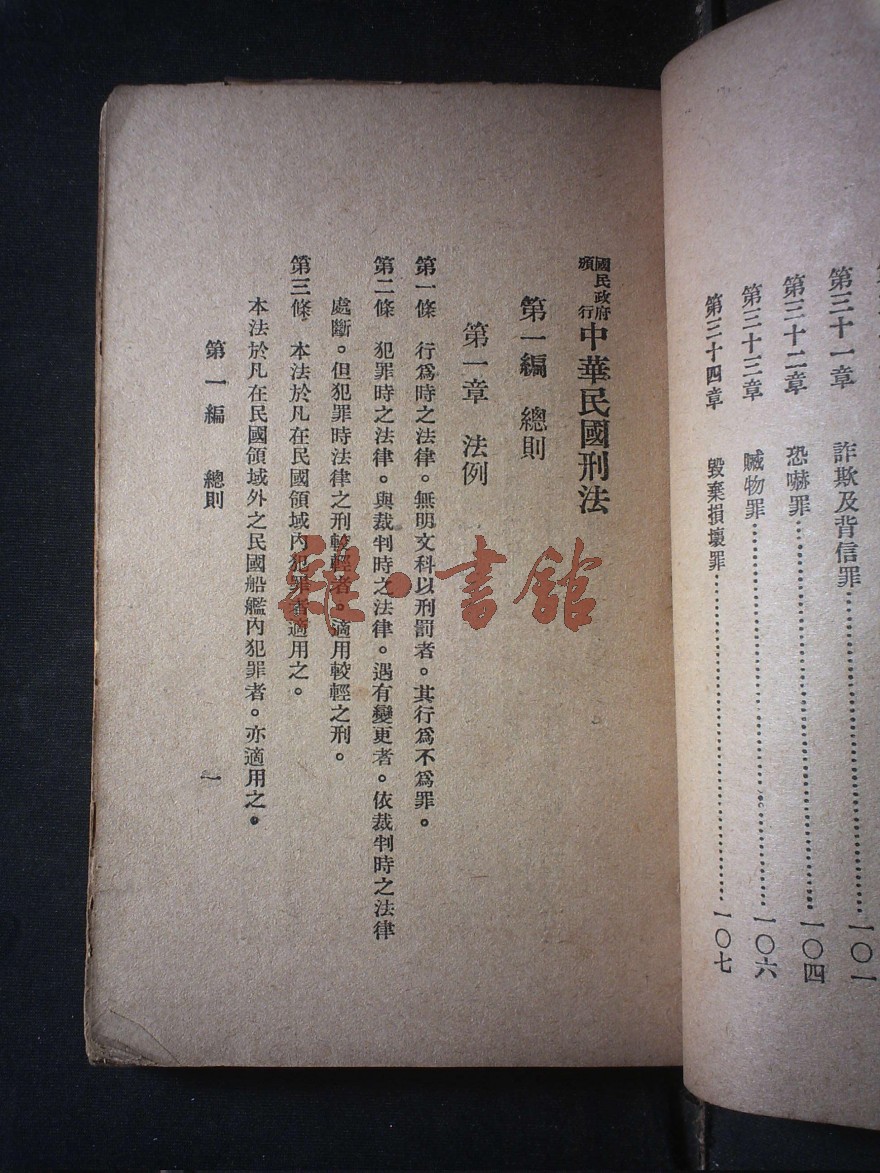 第三十一章 詐欺及背信罪 一〇一
第三十二章 恐嚇罪 一〇四
第三十三章 贓物罪 一〇六
第三十四章 毀棄損壞罪 一〇七
國民政府頒行 中華民國刑法
第一編 總則
第一章 法例
第一條 行爲時之法律。無明文科以刑罰者。其行爲不爲罪。
第二條 犯罪時之法律。與裁判時之法律。遇有變更者。依裁判時之法律
處斷。但犯罪時法律之刑較輕者。適用較輕之刑。
第三條 本法於凡在民國領域內犯罪者適用之。
本法於凡在民國領域外之民國船艦內犯罪者。亦適用之。
第一編 總則
一
雜·書館